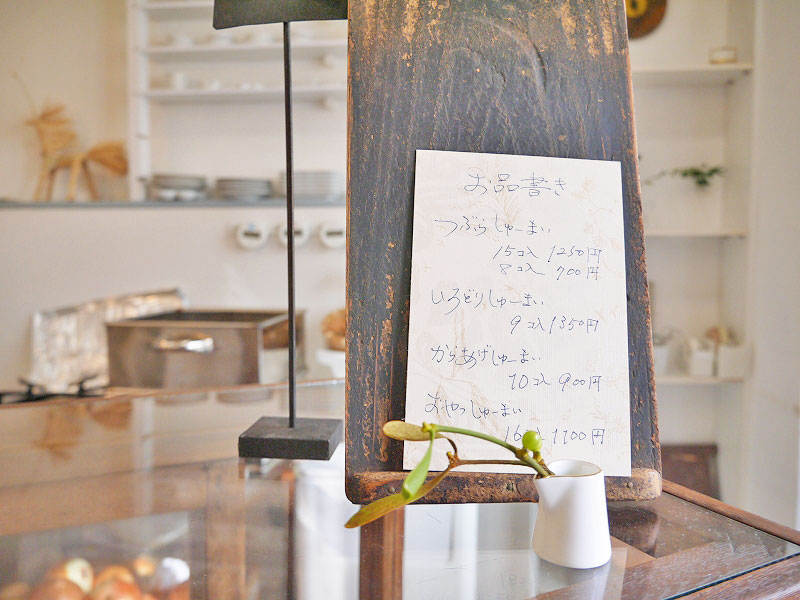 お品書き
つぶらしゅーまい
15コ入 1250円
8コ入 700円
いろどりしゅーまい
9コ入 1350円
からあげしゅーまい
10コ入 900円
おやつしゅーまい
16コ入 1100円